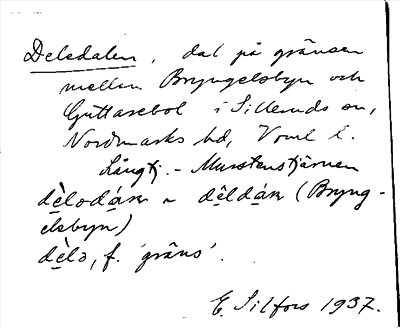 Delsdalen, dal på gränsen
mellan Bryngelsbyn och
Guttarebol i Silleruds sn,
Nordmarks hd, Vrml l.
Långtj. - Murstenstjärnen
dèlodák ~ dêldák (Bryng-
elsbyn)
dèlə, f. 'gräns'.
E. Silfors 1937.